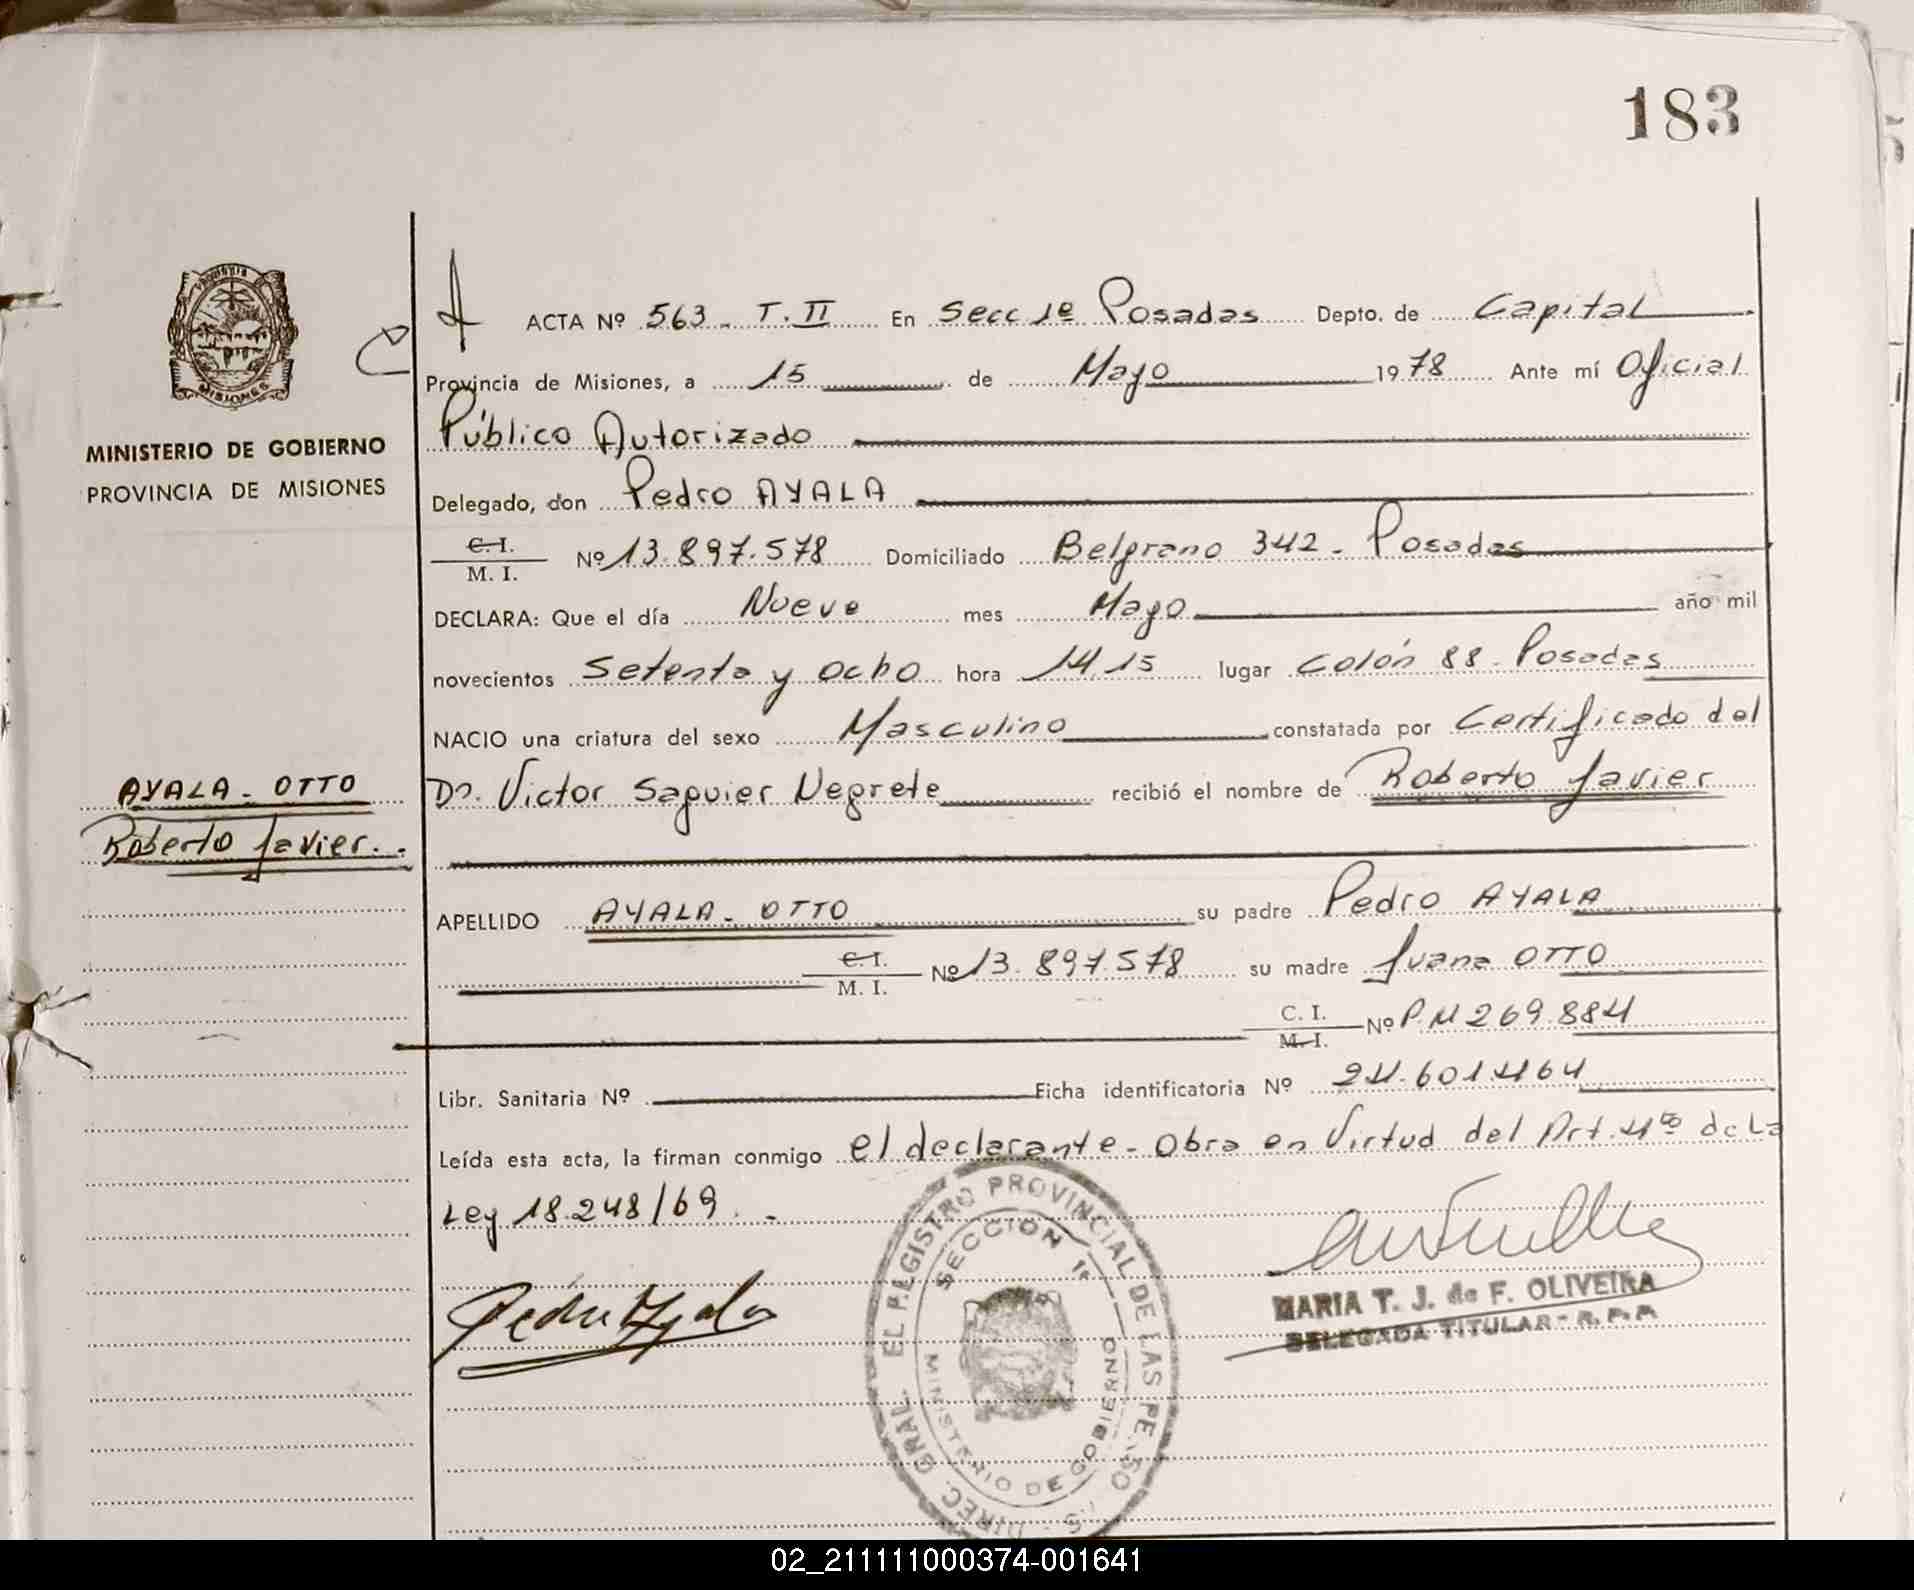 183
MINISTERIO DE GOBIERNO
PROVINCIA DE MISIONES
AYALA - OTTO
Roberto Javier.-
ACTA Nº 563 - T. II En Secc 1º Posadas Depto. de Capital
Provincia de Misiones, a 15 de Mayo 1978 Ante mí Oficial
Público Autorizado
Delegado, don Pedro AYALA
C. I. / M. I. Nº 13.897.578 Domiciliado Belgrano 342 - Posadas
DECLARA: Que el día Nueve mes Mayo año mil
novecientos Setenta y ocho hora 14,15 lugar Colón 88 - Posadas
NACIO una criatura del sexo Masculino constatada por Certificado del
Dr. Victor Saguier Negrete recibió el nombre de Roberto Javier
APELLIDO AYALA - OTTO su padre Pedro AYALA
C. I. / M. I. Nº 13.897.578 su madre Juana OTTO
C. I. / M. I. Nº P.N 269.884
Libr. Sanitaria Nº Ficha identificatoria Nº 24.601.464
Leída esta acta, la firman conmigo el declarante - Obra en Virtud del Art. 4to de La
Ley 18.248/69. -
Pedro Ayala
MARIA T. J. de F. OLIVEIRA
DELEGADA TITULAR - R. P. P.
DIREC. GRAL. EL REGISTRO PROVINCIAL DE LAS PERSO
SECCION 1ª
MINISTERIO DE GOBIERNO
MISIONES
02_211111000374-001641